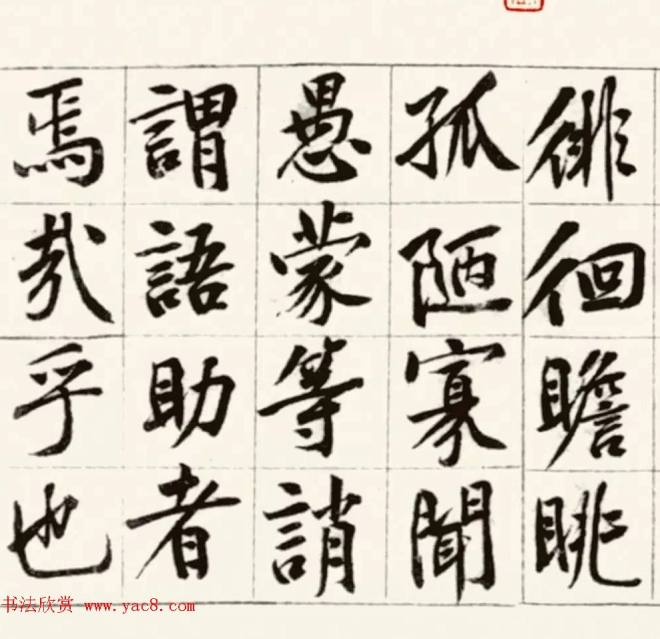 徘徊瞻眺
孤陋寡聞
愚蒙等誚
謂語助者
焉哉乎也
书法欣赏 www.yac8.com